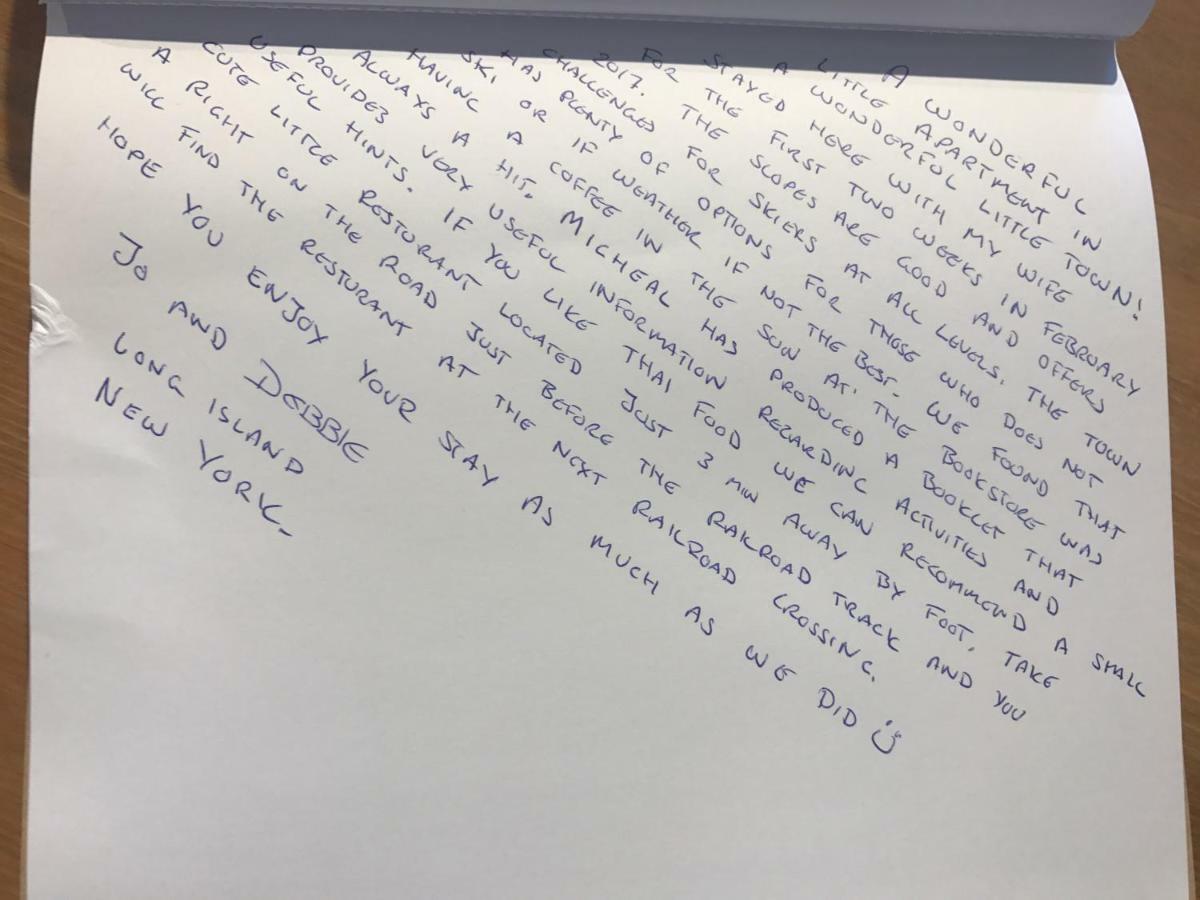 A WONDERFUL
LITTLE APARTMENT IN
A WONDERFUL LITTLE TOWN!
STAYED HERE WITH MY WIFE
FOR THE FIRST TWO WEEKS IN FEBRUARY
2017. THE SLOPES ARE GOOD AND OFFERS
CHALLENGES FOR SKIERS AT ALL LEVELS. THE TOWN
HAS PLENTY OF OPTIONS FOR THOSE WHO DOES NOT
SKI OR IF WEATHER IF NOT THE BEST. WE FOUND THAT
HAVING A COFFEE IN THE SUN AT THE BOOKSTORE WAS
ALWAYS A HIT. MICHEAL HAS PRODUCED A BOOKLET THAT
PROVIDES VERY USEFUL INFORMATION REGARDING ACTIVITIES AND
USEFUL HINTS. IF YOU LIKE THAI FOOD WE CAN RECOMMEND A SMALL
CUTE LITTLE RESTORANT LOCATED JUST 3 MIN AWAY BY FOOT, TAKE
A RIGHT ON THE ROAD JUST BEFORE THE RAILROAD TRACK AND YOU
WILL FIND THE RESTURANT AT THE NEXT RAILROAD CROSSING.
HOPE YOU ENJOY YOUR STAY AS MUCH AS WE DID
JO AND DEBBIE
LONG ISLAND
NEW YORK-